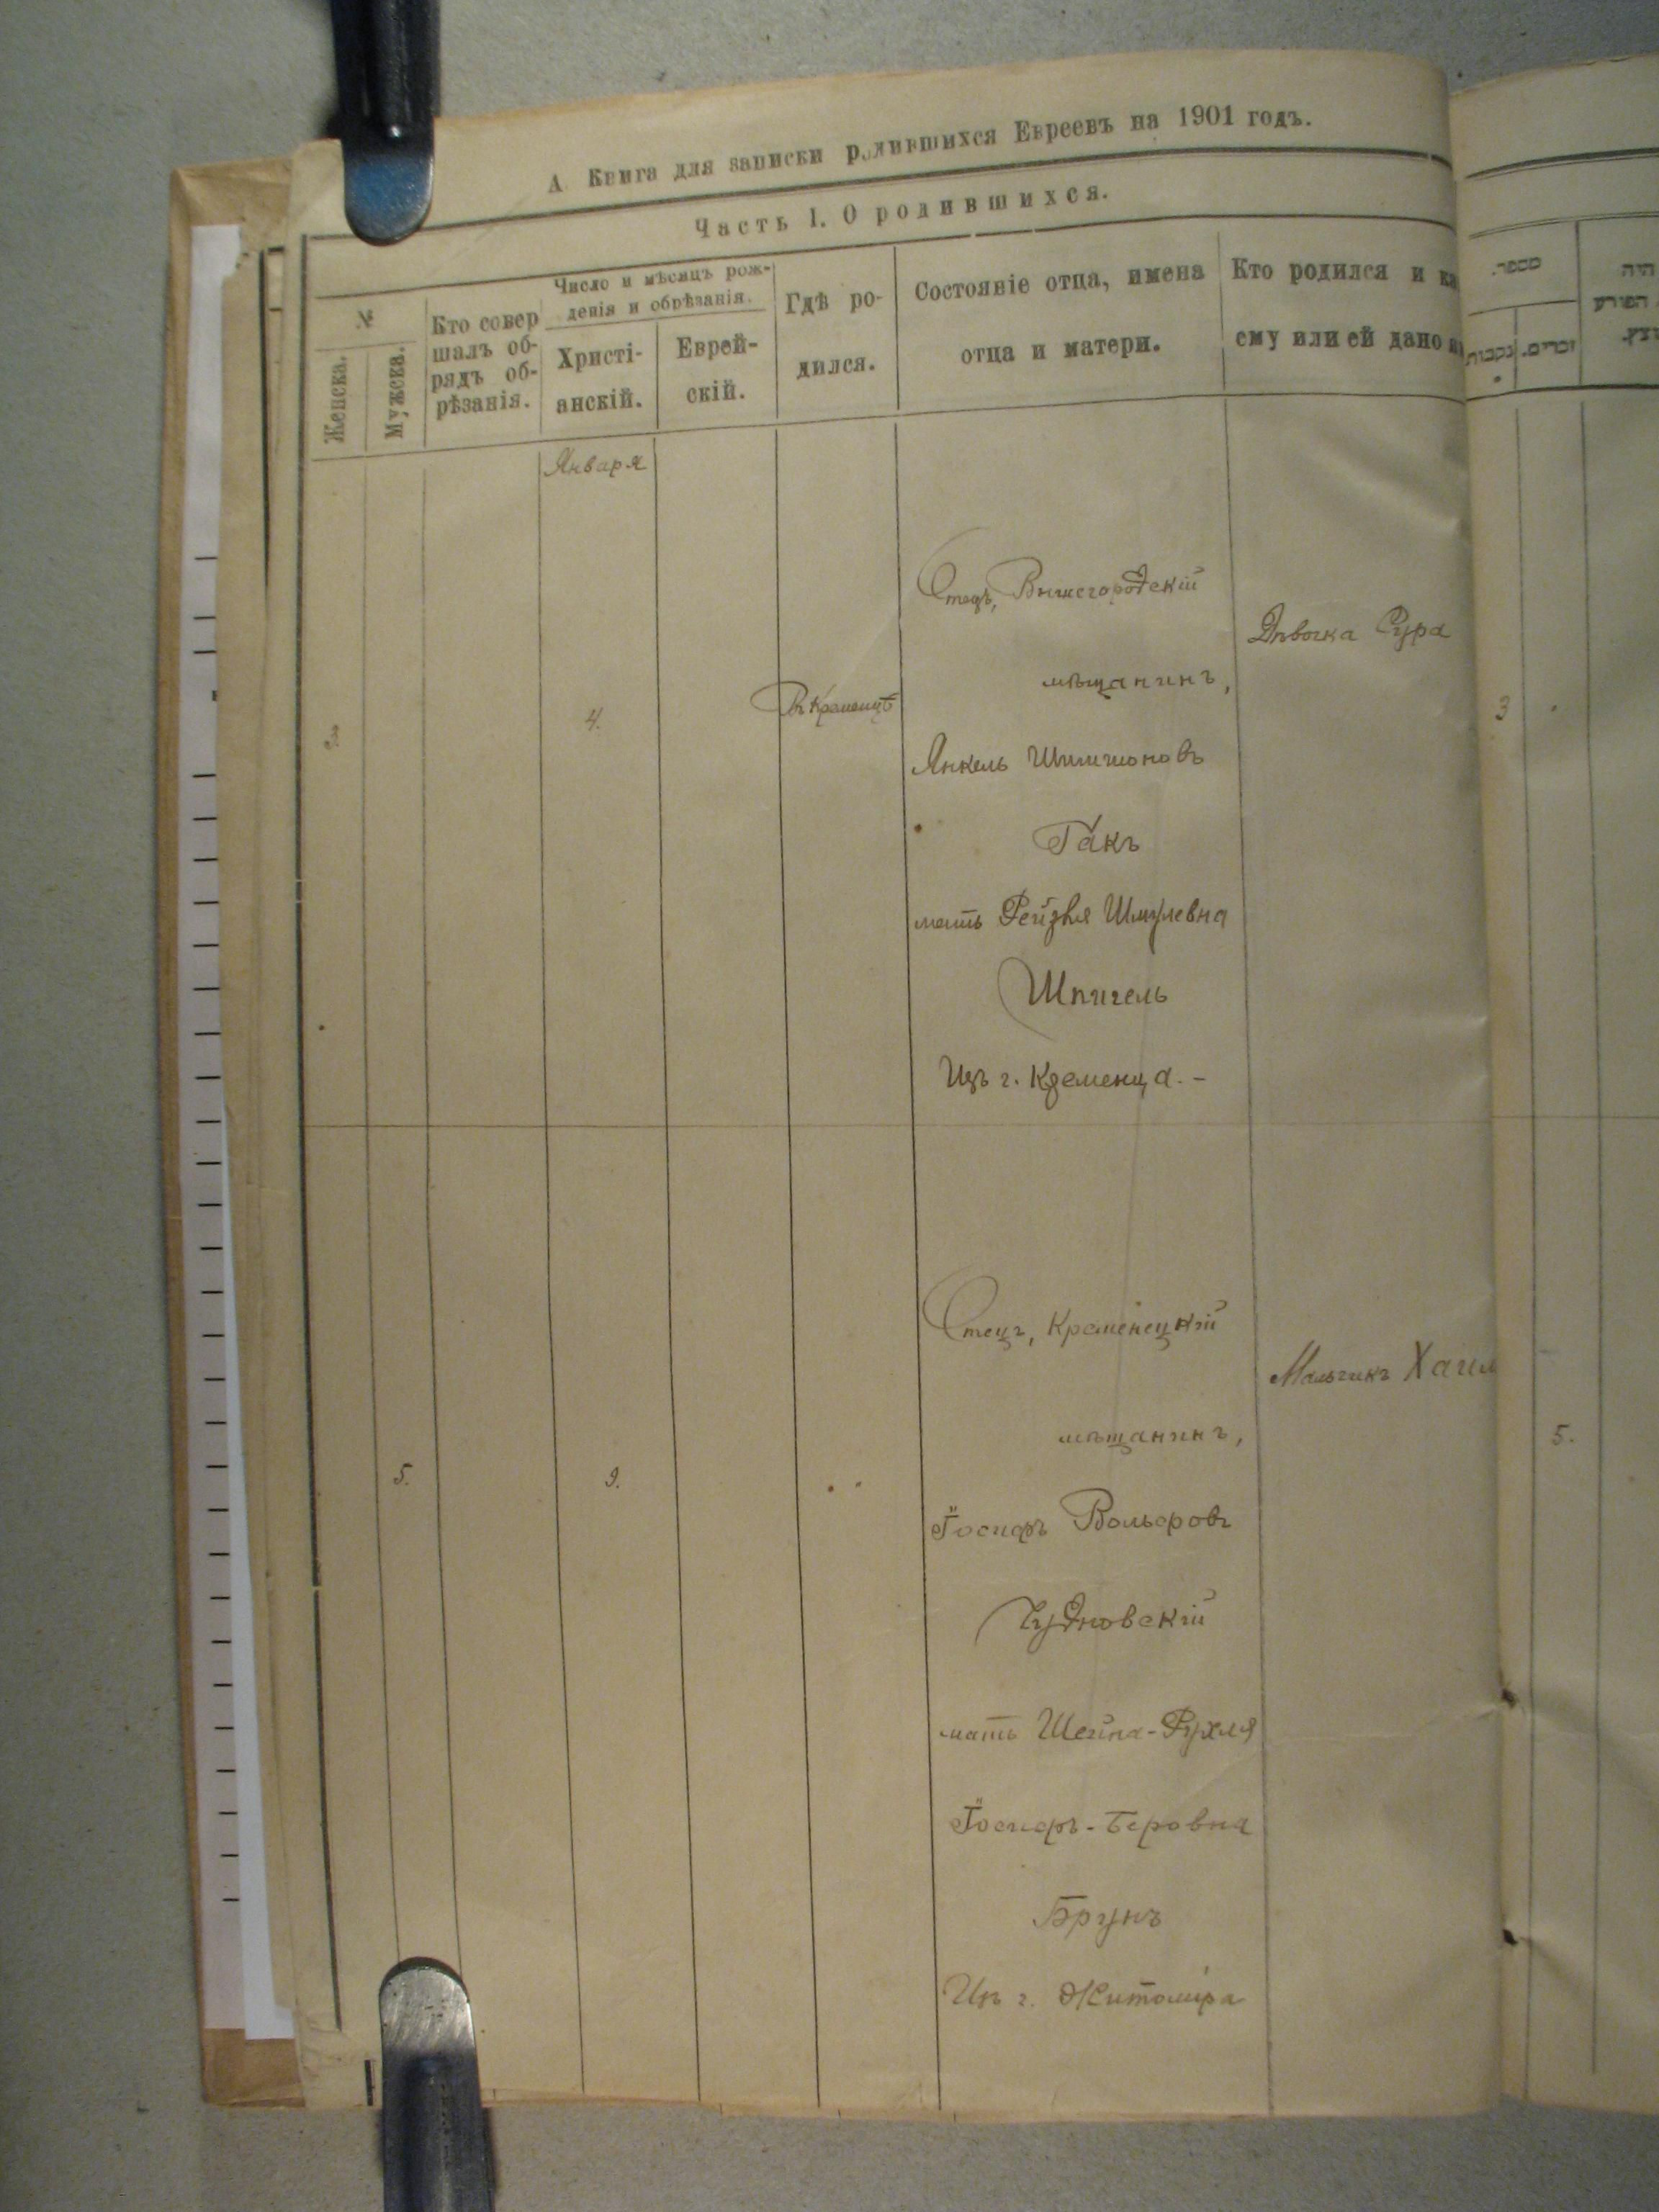 А. Книга для записки родившихся Евреевъ на 1901 годъ.
Часть I. О родившихся.
№
Женска.
Мужска.
Кто совер
шалъ об-
рядъ об-
рѣзанія.
Число и мѣсяцъ рож-
денія и обрѣзанія.
Христі-
анскій.
Еврей-
скій.
Гдѣ ро-
дился.
Состояніе отца, имена
отца и матери.
Кто родился и ка
ему или ей дано и
מספר.
נקבות
זכרים.
היה
הפורע
Января
3
4.
Въ Кременцѣ
Отецъ, Вышегородскій
мѣщанинъ,
Янкель Шимшоновъ
Гакъ
мать Рейзля Шмулевна
Шпигель
Изъ г. Кременца. -
Дѣвочка Сура
3
5.
9.
Отецъ, Кременецкій
мѣщанинъ,
Іосифъ Вольфовъ
Чудновскій
мать Шейна-Рухля
Іосифъ-Беровна
Брунъ
Изъ г. Житоміра
Мальчикъ Хаим
5.